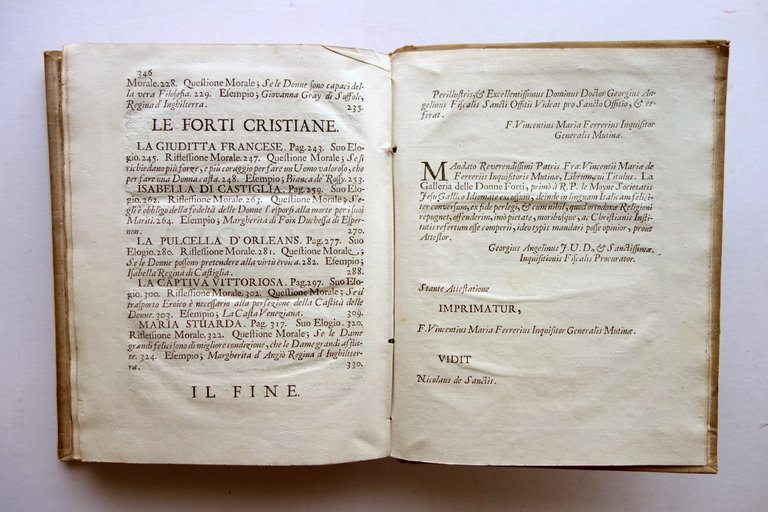 346
Morale. 228. Queſtione Morale; Se le Donne ſono capaci del-
la vera Filoſofia. 229. Eſempio; Giovanna Gray di Suffolc,
Regina d'Inghilterra. 235.
LE FORTI CRISTIANE.
LA GIUDITTA FRANCESE. Pag. 243. Suo Elo-
gio. 245. Rifleſſione Morale. 247. Queſtione Morale; Se ſi
richiedano più forze, e più coraggio per fare un Uomo valoroſo, che
per fare una Donna caſta. 248. Eſempio; Bianca de' Roſſy. 253.
ISABELLA DI CASTIGLIA. Pag. 259. Suo Elo-
gio. 262. Rifleſſione Morale. 263. Queſtione Morale; Se
egli è obbligo della fedeltà delle Donne l'eſporſi alla morte per i ſuoi
Mariti. 264. Eſempio; Margherita di Foix Ducheſſa di Eſper-
non. 270.
LA PULCELLA D'ORLEANS. Pag. 277. Suo
Elogio. 280. Rifleſſione Morale. 281. Queſtione Morale;
Se le Donne poſſono pretendere alla virtù eroica. 282. Eſempio;
Iſabella Regina di Caſtiglia. 288.
LA CAPTIVA VITTORIOSA. Pag. 297. Suo Elo-
gio. 300. Rifleſſione Morale. 302. Queſtione Morale; Se il
traſporto Eroico è neceſſario alla perfezione della Caſtità delle
Donne. 303. Eſempio; La Caſta Veneziana. 309.
MARIA STUARDA. Pag. 317. Suo Elogio. 320.
Rifleſſione Morale. 322. Queſtione Morale; Se le Dame
grandi felici ſono di migliore condizione, che le Dame grandi afflit-
te. 324. Eſempio; Margherita d'Angiò Regina d'Inghilter-
ra. 330.
IL FINE.
Perilluſtris, & Excellentiſſimus Dominus Doctor Georgius An-
gelinus Fiſcalis Sancti Offitii Videat pro Sancto Offitio, & re-
ferat.
F. Vincentius Maria Ferrerius Inquiſitor
Generalis Mutinæ.
MAndato Reverendiſſimi Patris Fra: Vincentii Mariæ de
Ferreriis Inquiſitoris Mutinæ, Librum, cui Titulus. La
Galleria delle Donne Forti, primò à R. P. le Moyne Societatis
Jeſu Galli, o Idiomate excuſſum, deinde in linguam Italicam felici-
ter converſum, ex fide perlegi, & cum nihil, quod ortodoxæ Religioni
repugnet, offenderim, imò pietate, moribuſque, ac Chriſtianis Inſti-
tutis refertum eſſe comperii, ideo typis mandari poſſe opinior, prout
Atteſtor.
Georgius Angelinus J. U. D., & Sanctiſſimæ
Inquiſitionis Fiſcalis Procurator.
Stante Atteſtatione
IMPRIMATUR,
F. Vincentius Maria Ferrerius Inquiſitor Generalis Mutinæ.
VIDIT
Nicolaus de Sanctis.